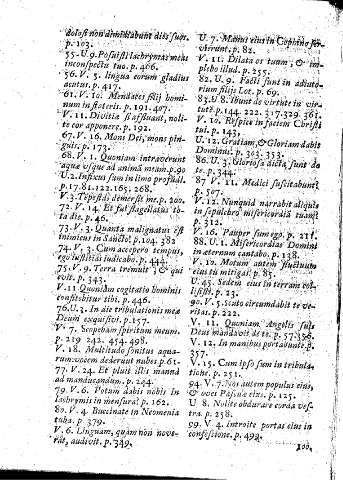 dolosi non dimidiabunt dies suos.
p. 103.
55. U. 9. Posuisti lachrymas meas
in conspectu tuo. p. 466.
56. V. 5. lingua eorum gladius
acutus. p. 417.
61. V. 10. Mendaces filij hominum
in stateris. p. 191. 407.
V. 11. Divitiæ si affluant, nolite
cor apponere. p. 192.
67. V. 16. Mons Dei, mons pinguis.
p. 173.
68. V. 1. Quoniam intraverunt
aquæ usque ad animam meam. p. 90
U. 2. Infixus sum in limo profundi.
p. 17. 81. 122. 165. 268.
V. 3. Tepestas demersit me. p. 200.
72. V. 14. Et fui flagellatus tota
die. p. 46.
73. V. 3. Quanta malignatus est
inimicus in Sancto! p. 104. 382
74. V. 3. Cum accepero tempus,
ego justitias judicabo. p. 444.
75. V. 9. Terra tremuit, & quievit.
p. 343.
V. 11 Quoniam cogitatio hominis
confitebitur tibi. p. 446.
76. U. 3. In die tribulationis meæ
Deum exquisivi. p. 157.
V. 7. Scopebam spiritum meum.
p. 219 242. 454. 498.
V. 18. Multitudo sonitus aquarum:
vocem dederunt nubes. p. 61.
77. V. 24. Et pluit illis manna
ad manducandum. p. 244.
79. V. 6. Potum dabis nobis in
lachrymis in mensura? p. 162.
80. V. 4. Buccinate in Neomenia
tuba. p. 379.
V. 6. Linguam, quam non noverat,
audivit. p. 349.
U. 7. Manus ejus in Cophino servierunt.
p. 82.
V. 11. Dilata os tuum, & implebo
illud. p. 255.
82. U. 9. Facti sunt in adjutorium
filijs Lot. p. 69.
83. U. 8. Ibunt de virtute in virtutem.
p. 144. 222. 317. 329. 361.
V. 10. Respice in faciem Christi
tui. p. 143.
U. 12. Gratiam, & Gloriam dabit
Dominus. p. 303. 353.
86. U. 3. Gloriosa dicta sunt de
te. p. 344.
87 V. 11. Medici suscitabunt?
p. 507.
V. 12. Nunquid narrabit aliquis
in sepulchro misericordiam tuam?
p. 312.
V. 16. Pauper sum ego. p. 211.
88. U. 1. Misericordias Domini
in æternum cantabo. p. 138.
V. 12. Motum autem fluctuum
ejus tu mitigas. p. 83.
U. 45. Sedem ejus in terram collisisti.
p. 23.
90. V. 5. Scuto circumdabit te veritas.
p. 222.
V. 11. Quoniam Angelis suis
Deus mandavit de te. p. 57. 356.
V. 12. In manibus portabunt te. p.
357.
V. 15. Cum ipso sum in tribulatione.
p. 251.
94. V. 7. Nos autem populus ejus,
& oves Pascuæ ejus. p. 125.
U 8. Nolite obdurare corda vestra.
p. 258.
99. V. 4. introite portas ejus in
confessione. p. 499.
100.